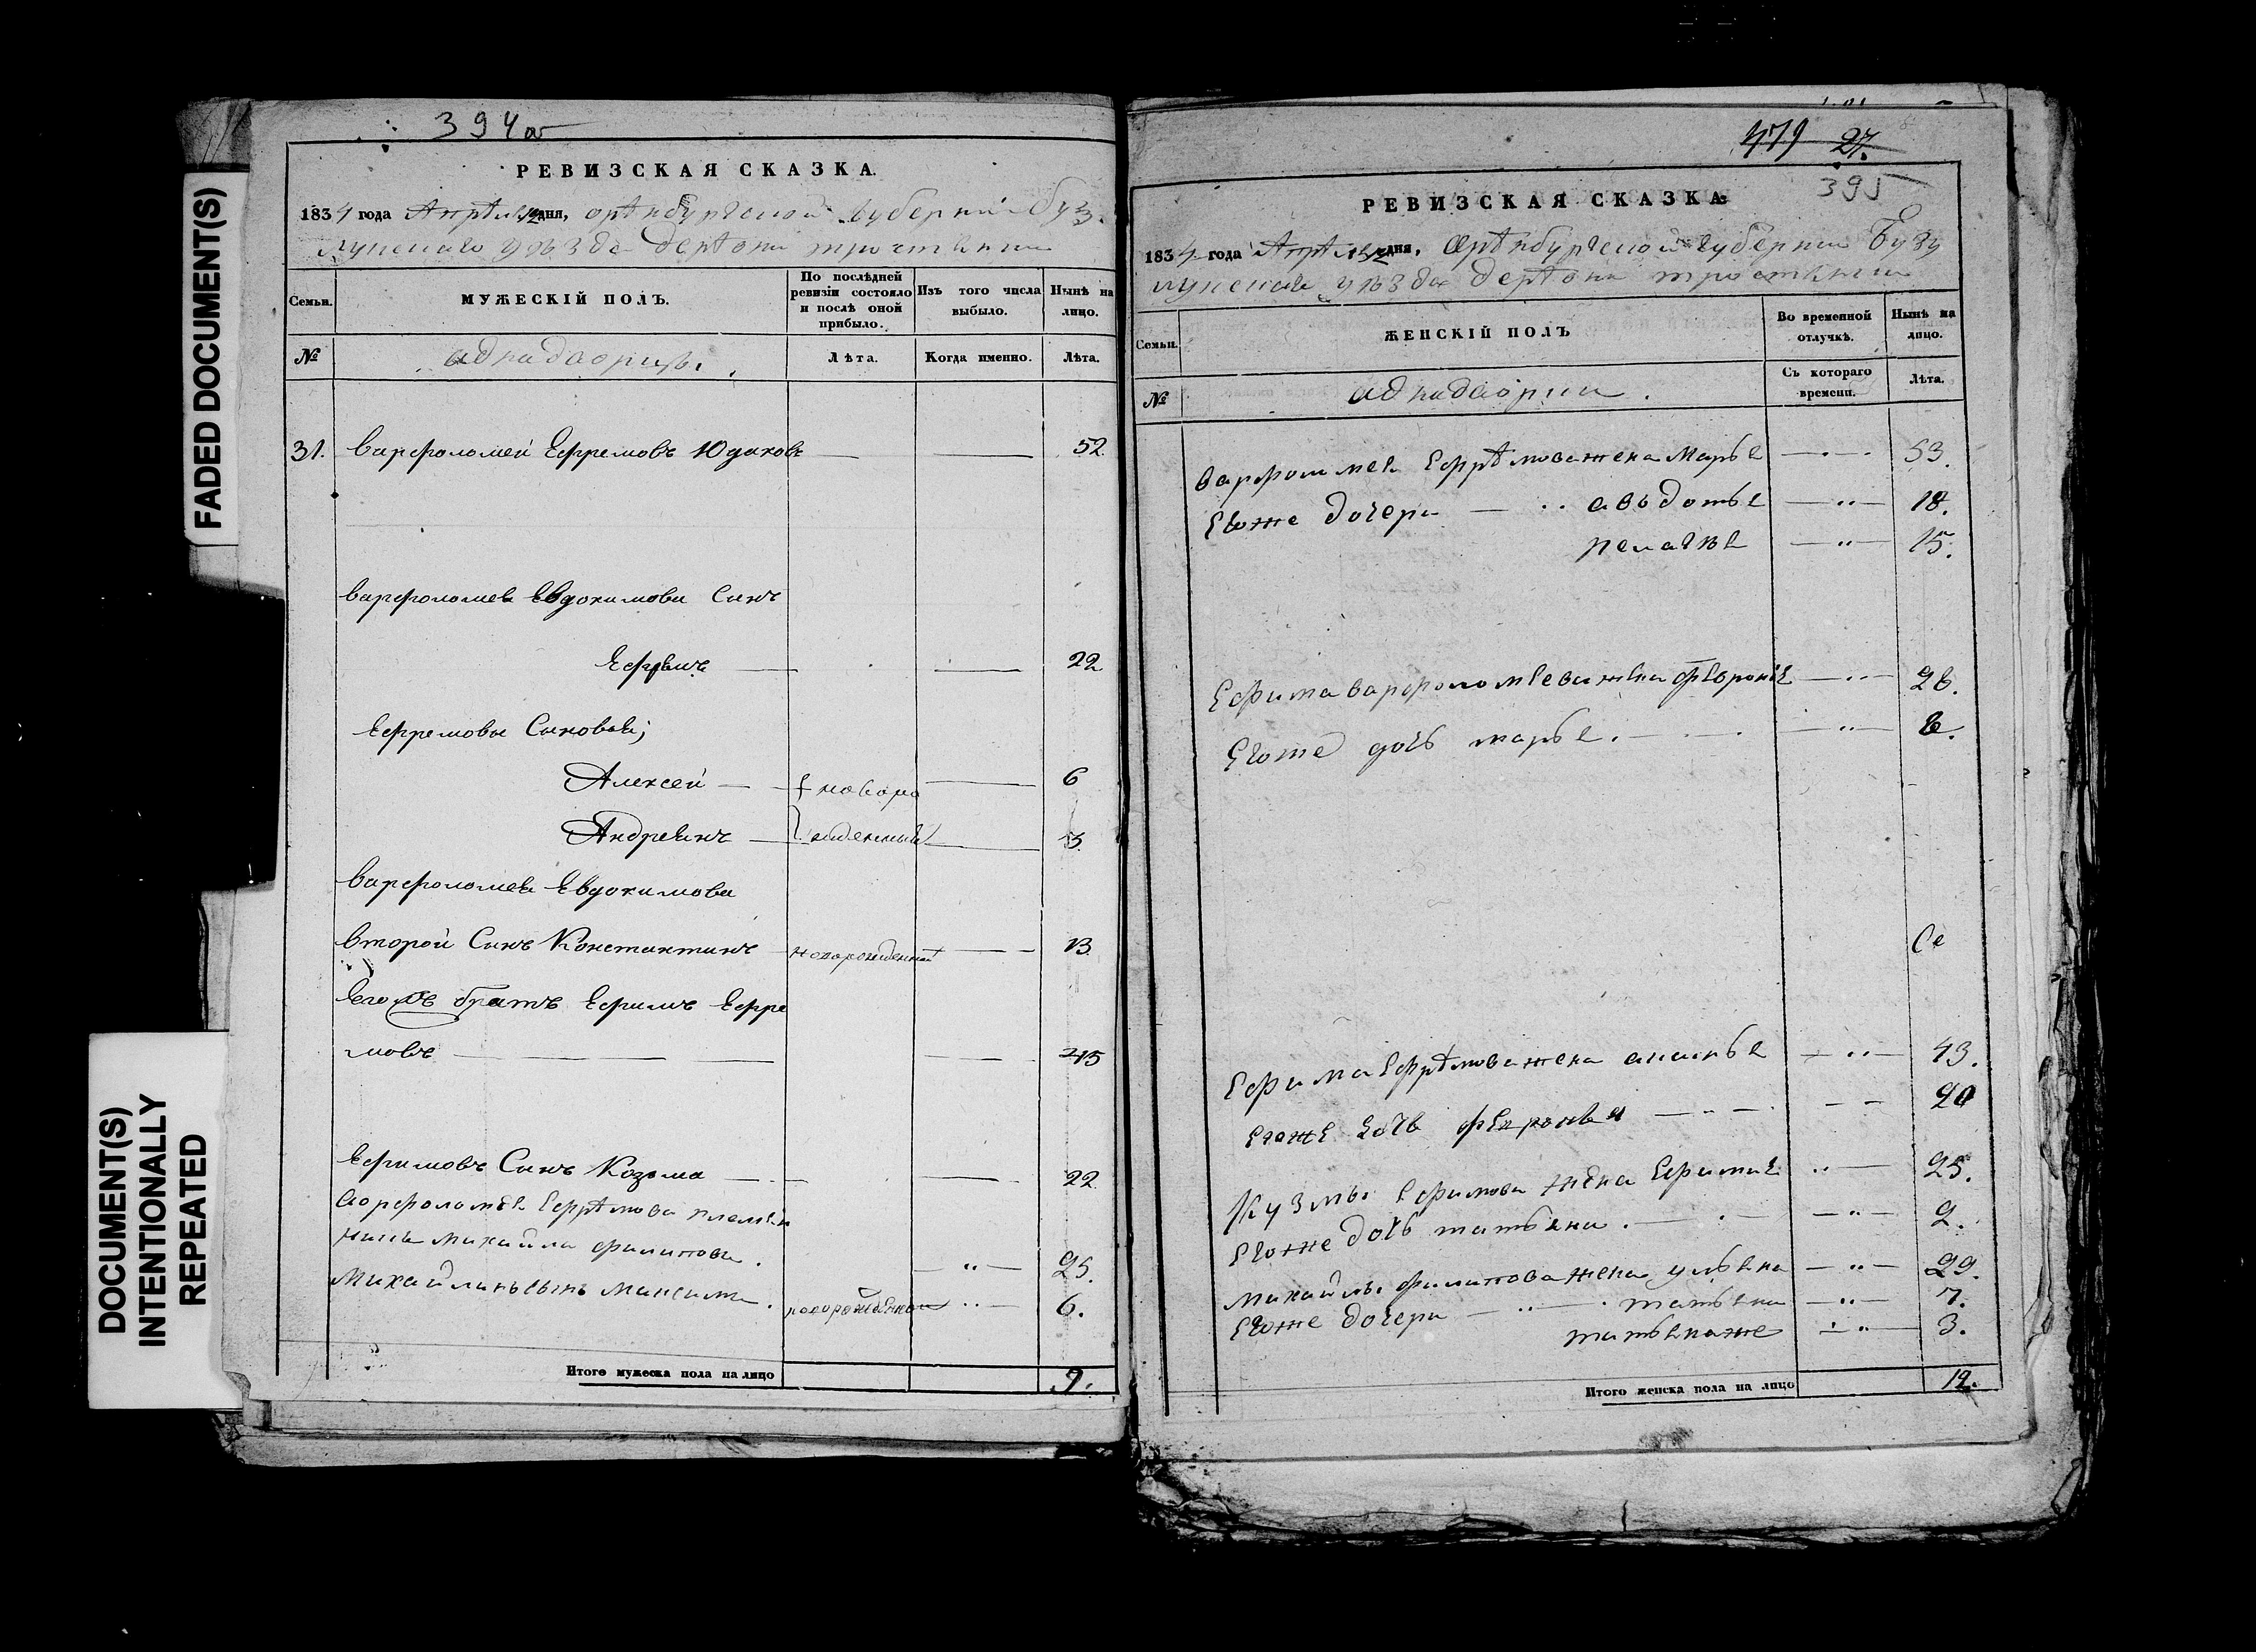 FADED DOCUMENT(S)
DOCUMENT(S)
INTENTIONALLY
REPEATED
394 об
РЕВИЗСКАЯ СКАЗКА.
1834 года Апреля дня, оренбургской губернии буз.
лукскаго уѣзда деревни
Семьи.
МУЖЕСКІЙ ПОЛЪ.
По послѣдней ревизіи состояло и послѣ оной прибыло.
Изъ того числа выбыло.
Нынѣ на лицо.
№
Лѣта.
Когда именно.
Лѣта.
31. Варфоломей Ефремовъ Юдаковъ — — 52
Варфоломея Евдокимова Сынъ
— — 22
Ефремовы Сыновья;
Алексей — новоро — 6
Андреянъ — жденныя — 3
Варфоломея Евдокимова
второй Сынъ Константинъ новорожденной — 13
Егожъ братъ Ефимъ Ефре
мовъ — — 45
Ефимовъ Сынъ Козьма — — 22
Ворфоломея Ефремова племян
никъ Михайла Филиповъ. — „ — 25.
Михайлинъ сынъ Максимъ. новорожденной „ — 6.
Итого мужеска пола на лицо 9.
479 27.
395
РЕВИЗСКАЯ СКАЗКА
1834 года Апреля дня, Оренбургской губернии Бузу
лукскаго уѣзда деревни
Семьи.
ЖЕНСКІЙ ПОЛЪ
Во временной отлучкѣ.
Нынѣ на лицо.
№
Съ котораго времени.
Лѣта.
Варфоломея Ефремова жена Марья — „ — 53.
Егоже дочери — „ авдотья — „ — 18.
пелагея — „ — 15.
Ефима варфоломеева жена февронья — „ — 26.
Егоже дочь марья. — „ —
Ефима Ефремова жена — „ — 43.
Егоже дочь — — 20
Кузмы Ефимова жена Ефимия „ — 25.
Егоже дочь татьяна. — „ — 2.
михайлы филипова жена ульяна — „ — 29.
Егоже дочери — „ татьяна — „ — 7.
татьянаже — „ — 3.
Итого женска пола на лицо 12.